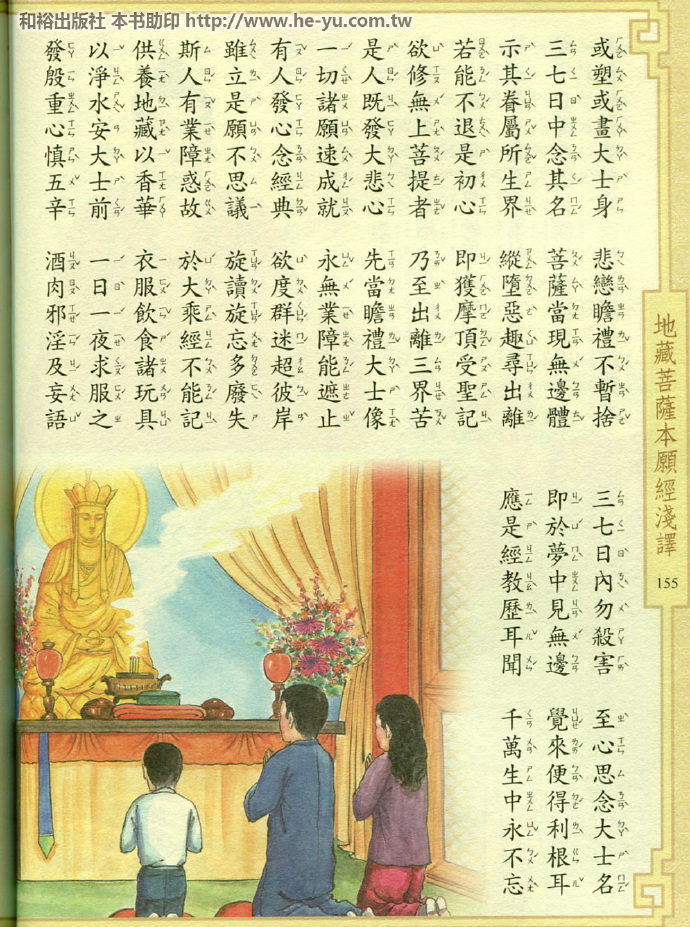 和裕出版社 本书助印 http://www.he-yu.com.tw
或塑或畫大士身 悲戀瞻禮不暫捨
三七日中念其名 菩薩當現無邊體
示其眷屬所生界 縱墮惡趣尋出離
若能不退是初心 即獲摩頂受聖記
欲修無上菩提者 乃至出離三界苦
是人既發大悲心 先當瞻禮大士像
一切諸願速成就 永無業障能遮止
有人發心念經典 欲度群迷超彼岸
雖立是願不思議 旋讀旋忘多廢失
斯人有業障惑故 於大乘經不能記
供養地藏以香華 衣服飲食諸玩具
以淨水安大士前 一日一夜求服之
發殷重心慎五辛 酒肉邪淫及妄語
三七日內勿殺害 至心思念大士名
即於夢中見無邊 覺來便得利根耳
應是經教歷耳聞 千萬生中永不忘
地藏菩薩本願經淺譯
155